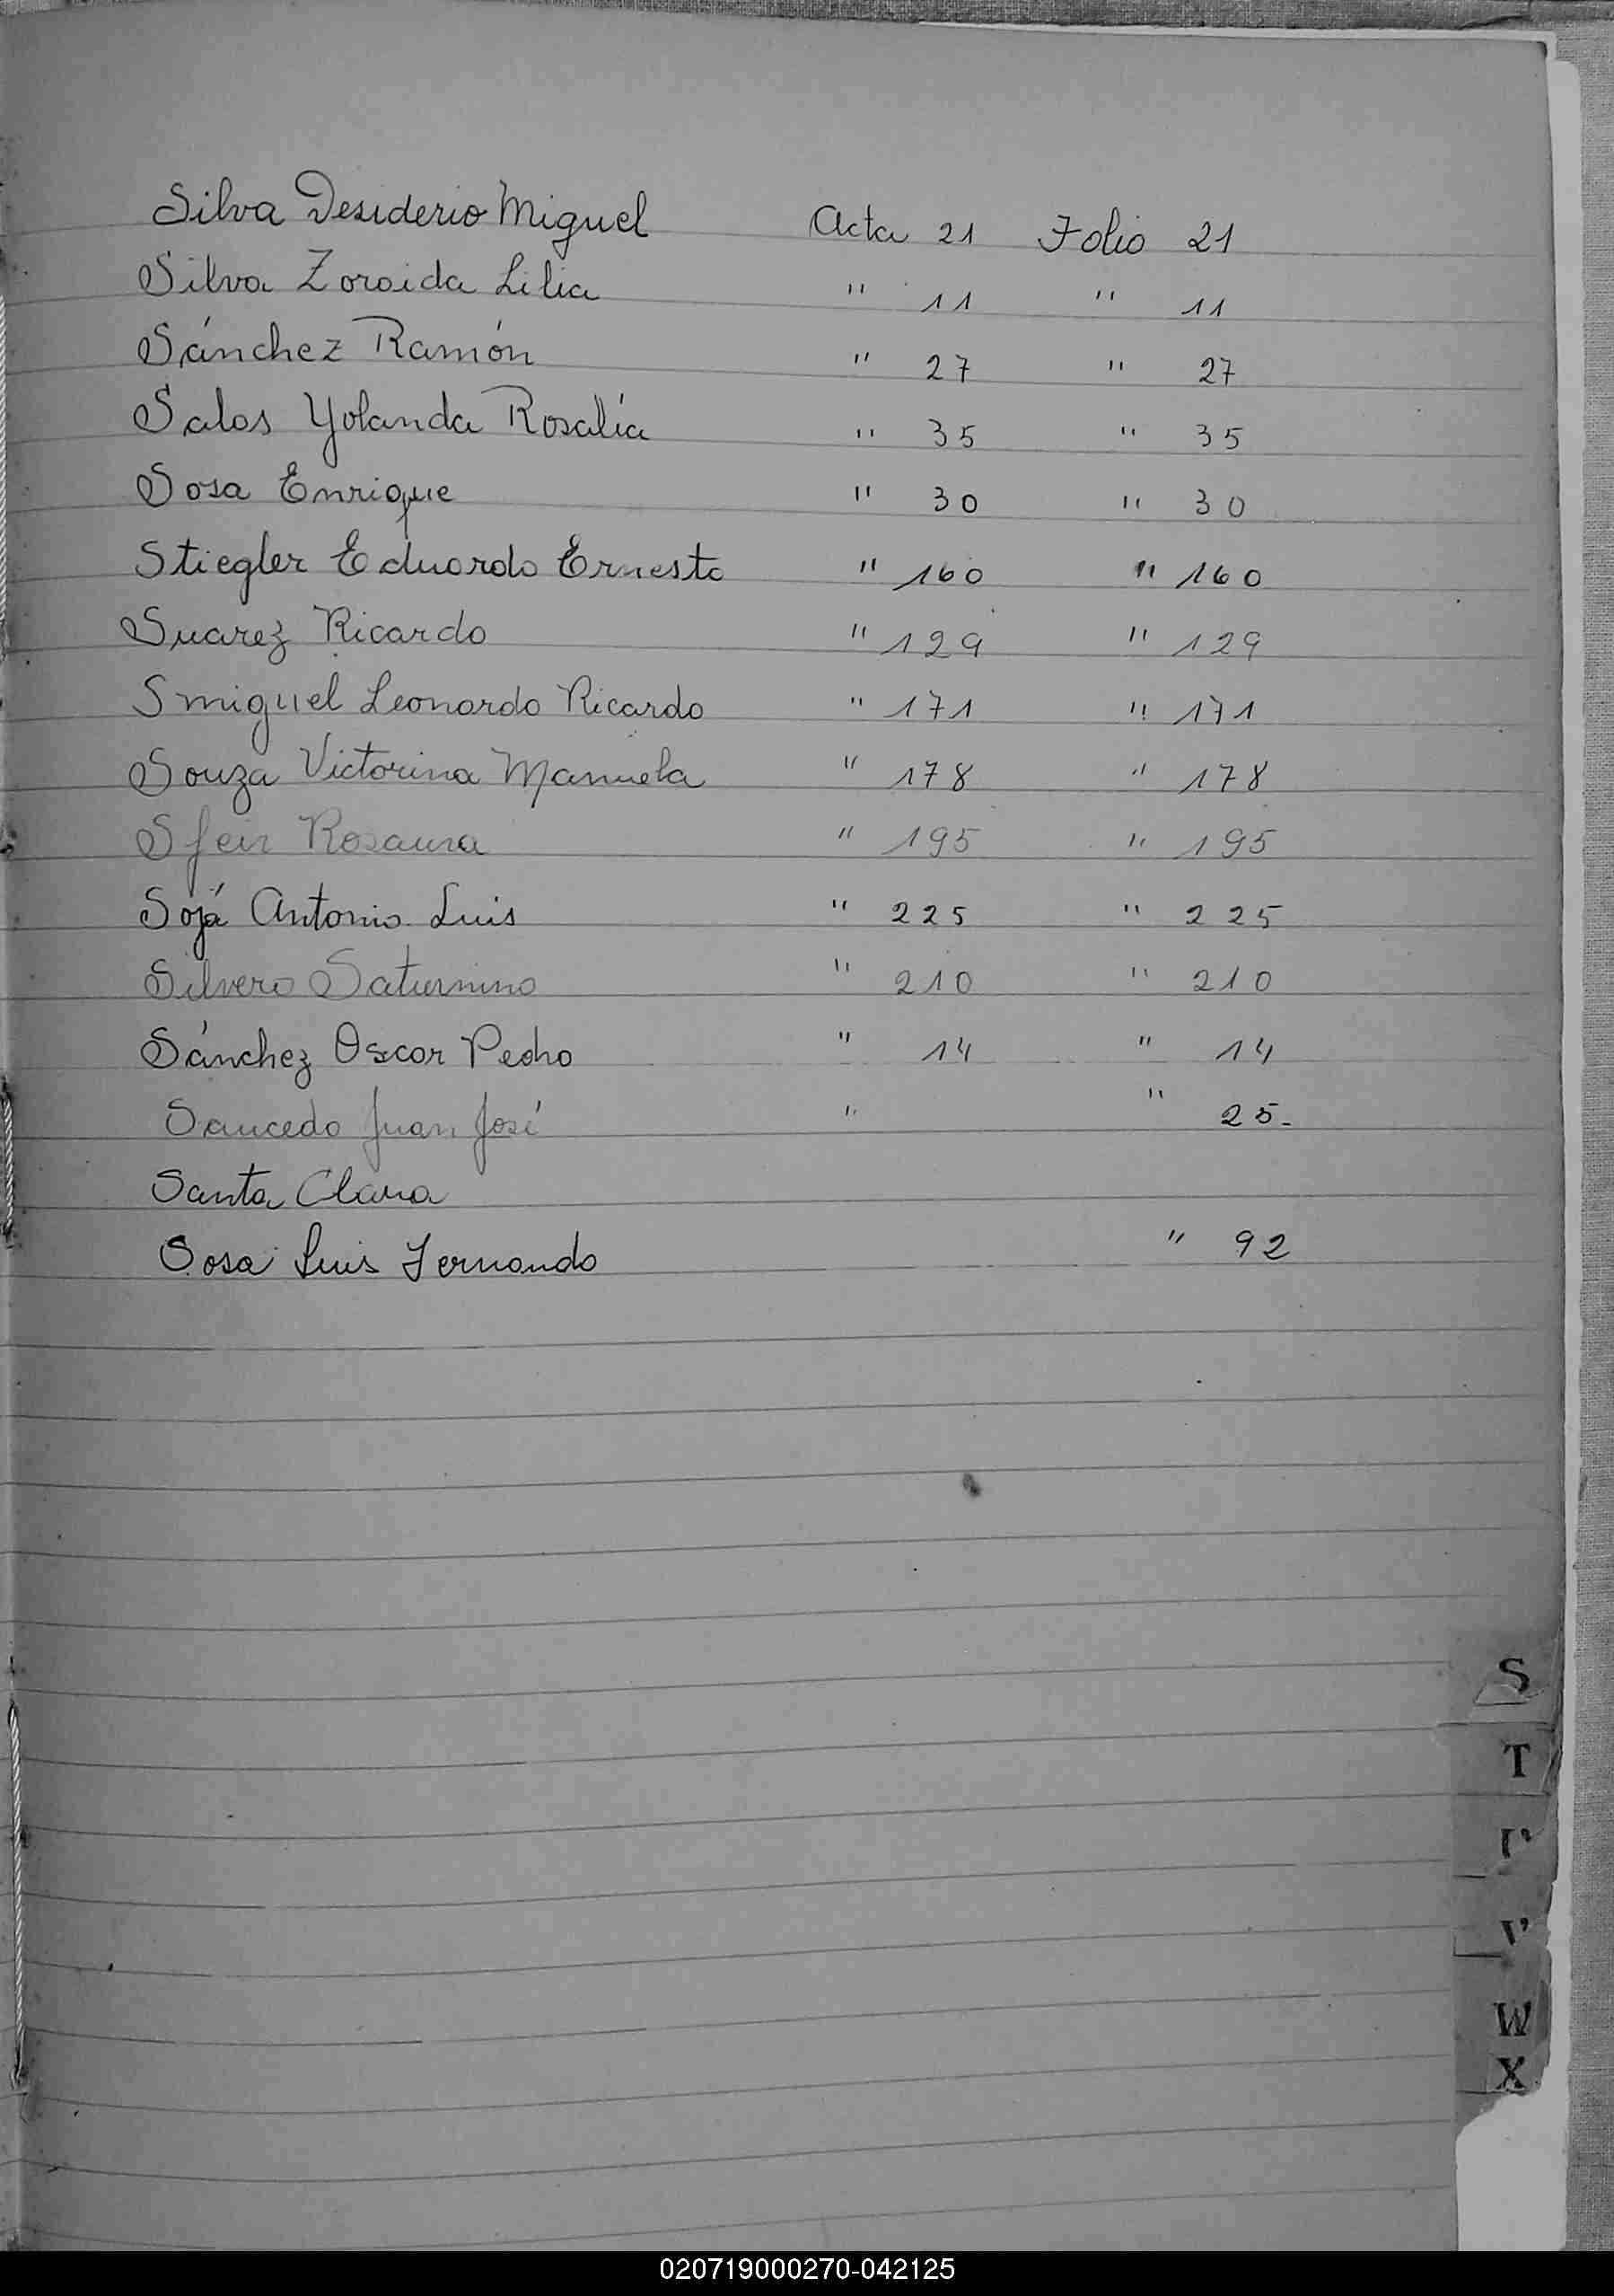 Silva Desiderio Miguel Acta 21 Folio 21
Silva Zoraida Lilia " 11 " 11
Sánchez Ramón " 27 " 27
Salas Yolanda Rosalía " 35 " 35
Sosa Enrique " 30 " 30
Stiegler Eduardo Ernesto " 160 " 160
Suarez Ricardo " 129 " 129
Smiguel Leonardo Ricardo " 171 " 171
Souza Victorina Manuela " 178 " 178
Sfeir Rosaura " 195 " 195
Sojá Antonio Luis " 225 " 225
Silvero Saturnino " 210 " 210
Sánchez Oscar Pedro " 14 " 14
Saucedo Juan José " " 25.
Santa Clara
Sosa Luis Fernando " 92
S
T
V
W
X
020719000270-042125